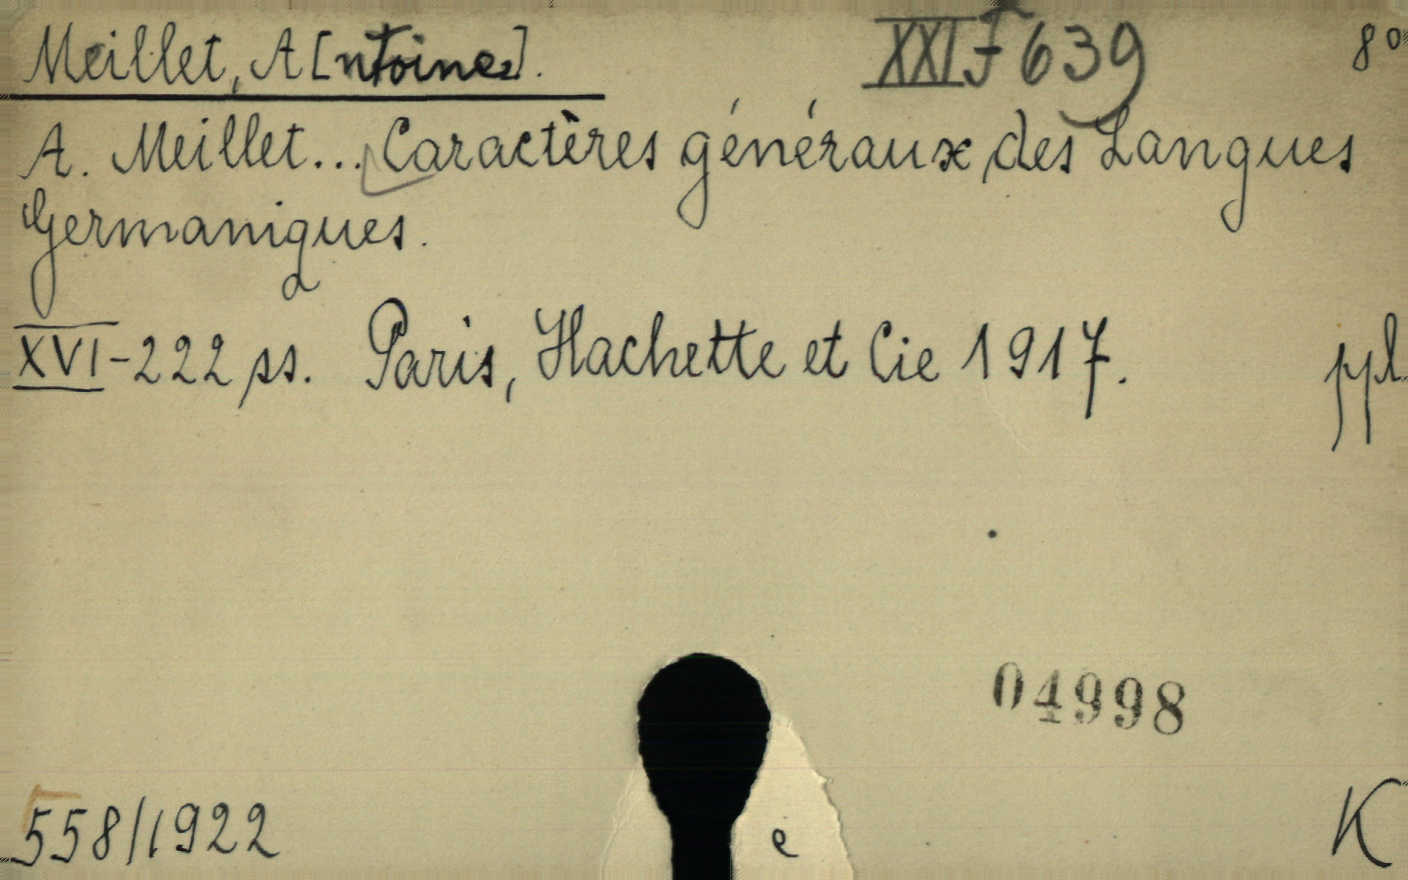 Meillet, A[ntoine]. XXI F 639 8°
A. Meillet... Caractères généraux des Langues
Germaniques.
XVI-222 ss. Paris, Hachette et Cie 1917. ppl
04998
558/1922 e K